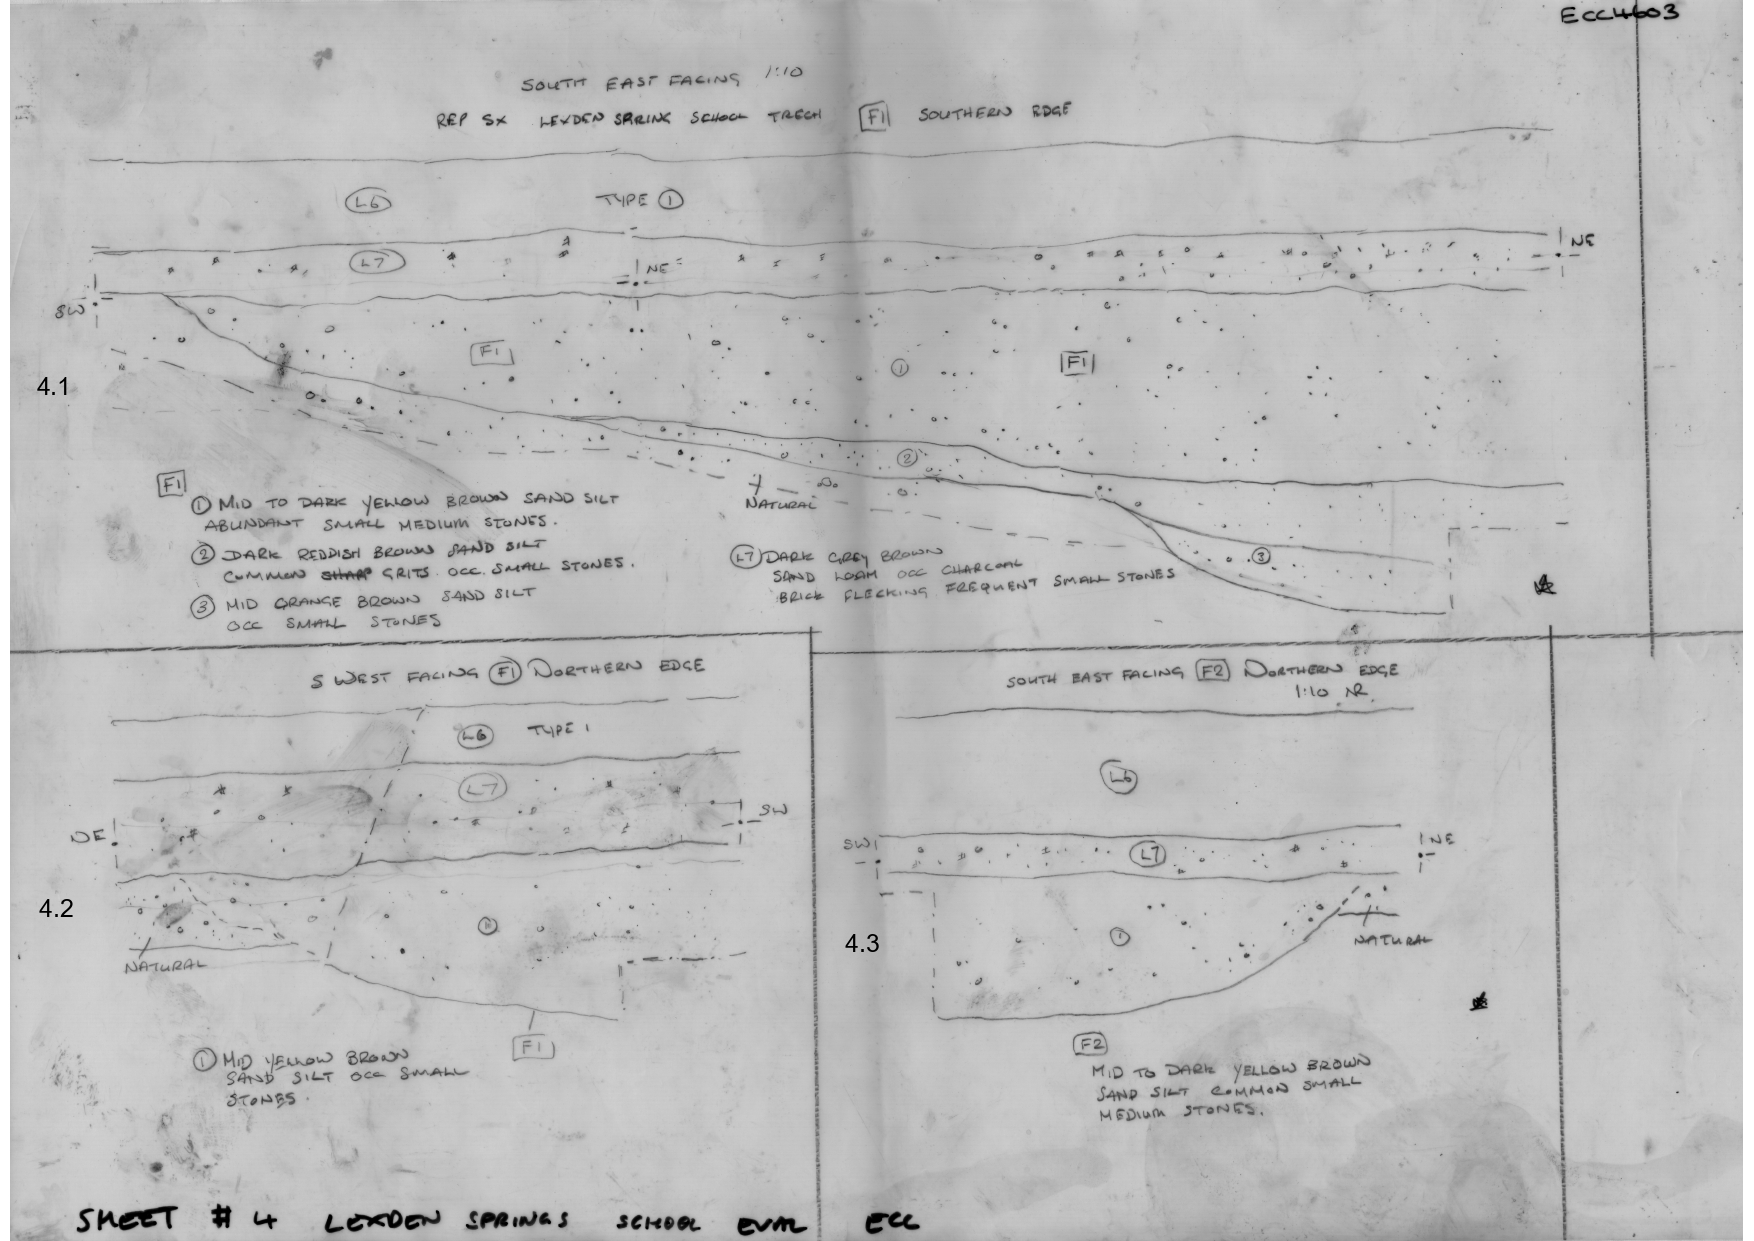 ECC4603
SOUTH EAST FACING 1:10
REP SX LEXDEN SPRING SCHOOL TRECH F1 SOUTHERN EDGE
L6 TYPE 1
L7
NE
NE
SW
F1
1
F1
4.1
2
NATURAL
3
F1
1 MID TO DARK YELLOW BROWN SAND SILT
ABUNDANT SMALL MEDIUM STONES.
2 DARK REDDISH BROWN SAND SILT
COMMON SHARP GRITS OCC. SMALL STONES.
3 MID ORANGE BROWN SAND SILT
OCC SMALL STONES
L7 DARK GREY BROWN
SAND LOAM OCC CHARCOAL
BRICK FLECKING FREQUENT SMALL STONES
S WEST FACING F1 NORTHERN EDGE
L6 TYPE 1
L7
NE
SW
4.2
1
NATURAL
F1
1 MID YELLOW BROWN
SAND SILT OCC SMALL
STONES.
SOUTH EAST FACING F2 NORTHERN EDGE
1:10
L6
SW
L7
NE
4.3
1
NATURAL
F2
MID TO DARK YELLOW BROWN
SAND SILT COMMON SMALL
MEDIUM STONES.
SHEET # 4 LEXDEN SPRINGS SCHOOL EVAL ECC